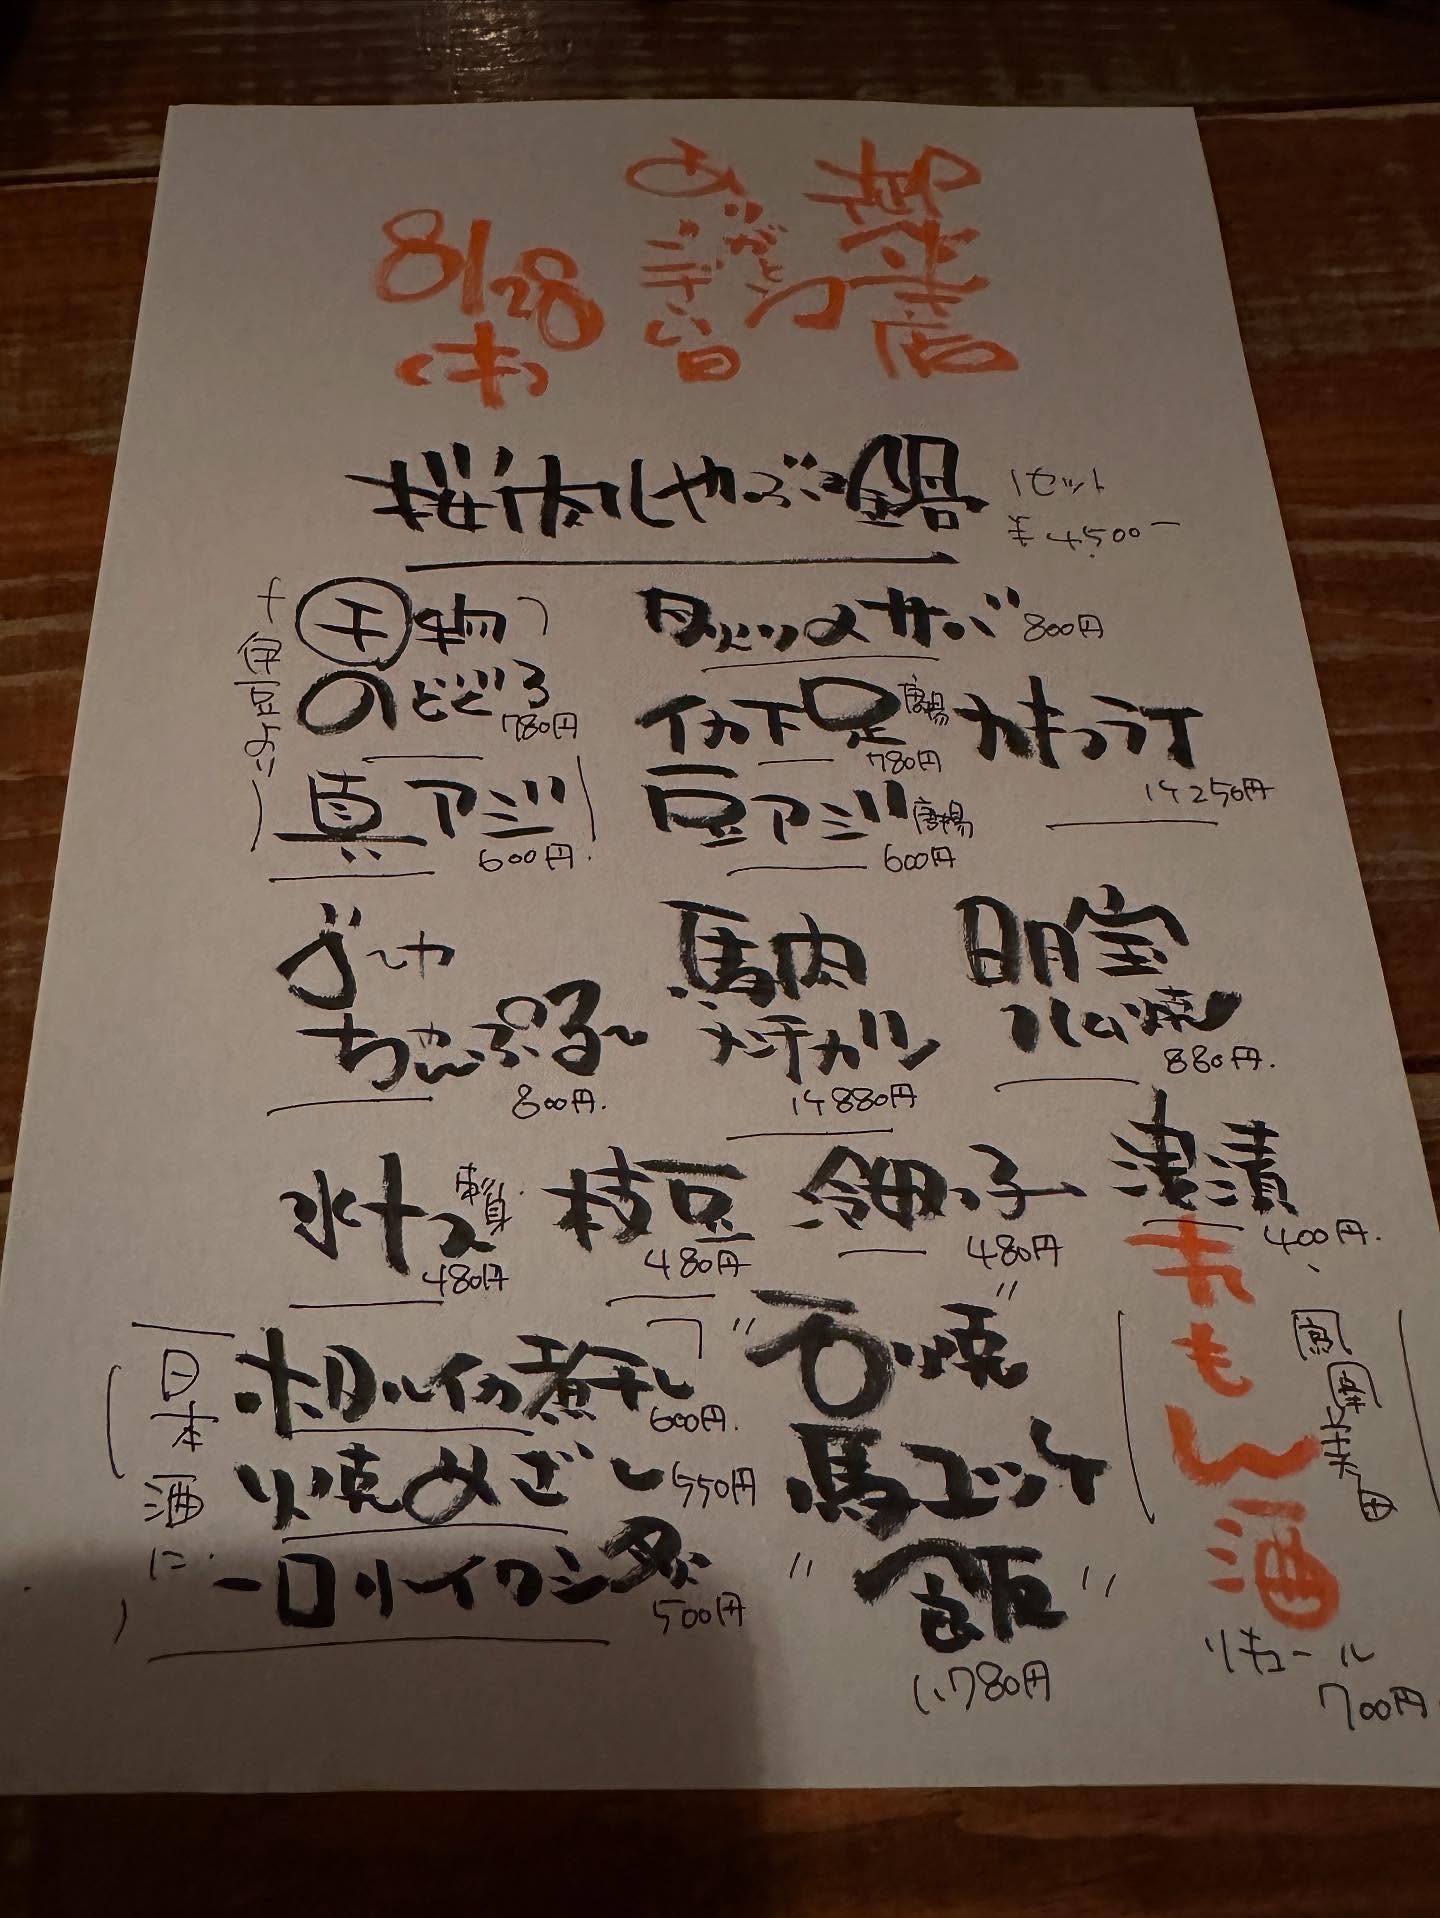 8/28
(木)
桜肉しゃぶ鍋
1セット
¥4,500ー
伊豆より
干物
のどぐろ
780円
真アジ
600円
〆サバ
800円
イカ下足唐揚
780円
カキフライ
1ケ250円
豆アジ唐揚
600円
ゴーヤ
ちゃんぷる〜
800円
馬肉
メンチカツ
1ケ880円
明宝
ハム焼
880円
水ナス
480円
枝豆
480円
冷田っ子
480円
漬
400円
日本酒に
ホタルイカ煮干し
600円
焼めざし
550円
一口イワシ
500円
"石焼"
馬ユッケ
"飯"
1,780円
れもん酒
リキュール
700円